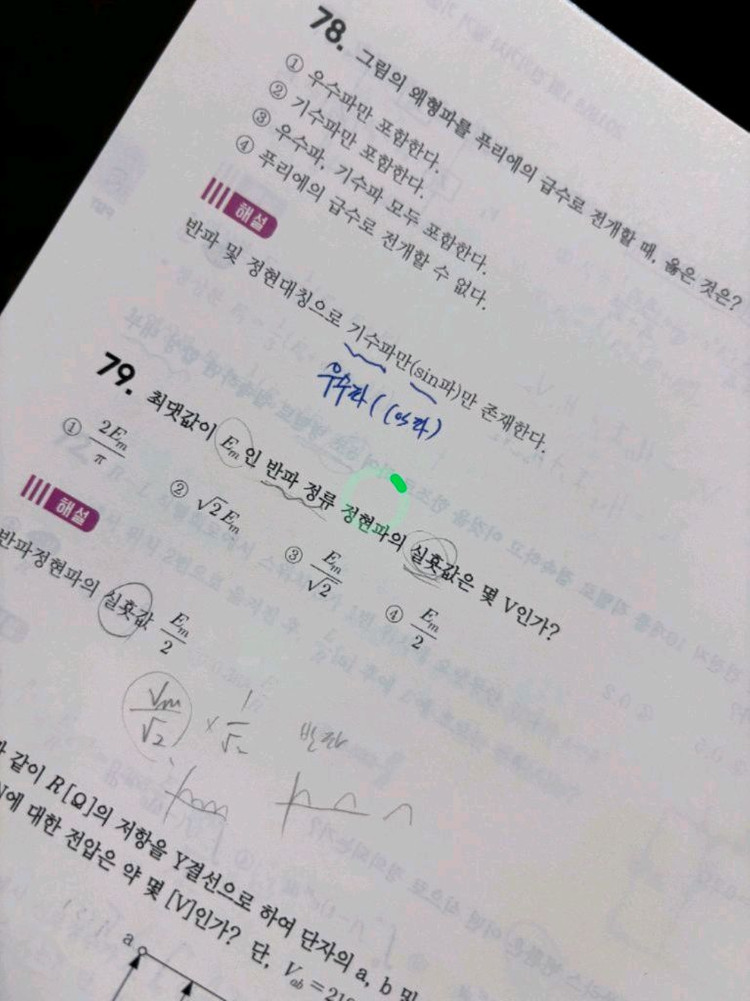 78. 그림의 왜형파를 푸리에의 급수로 전개할 때, 옳은 것은?
① 우수파만 포함한다.
② 기수파만 포함한다.
③ 우수파, 기수파 모두 포함한다.
④ 푸리에의 급수로 전개할 수 없다.
해설
반파 및 정현대칭으로 기수파만(sin파)만 존재한다.
우수파 (cos파)
79. 최댓값이 Eₘ인 반파 정류 정현파의 실횻값은 몇 V인가?
① 2Eₘ/π
② √2Eₘ
③ Eₘ/√2
④ Eₘ/2
해설
반파정현파의 실횻값 Eₘ/2
Vm/√2 × 1/√2 반파
같이 R[Ω]의 저항을 Y결선으로 하여 단자의 a, b 및
에 대한 전압은 약 몇 [V]인가? 단, Vab =
a